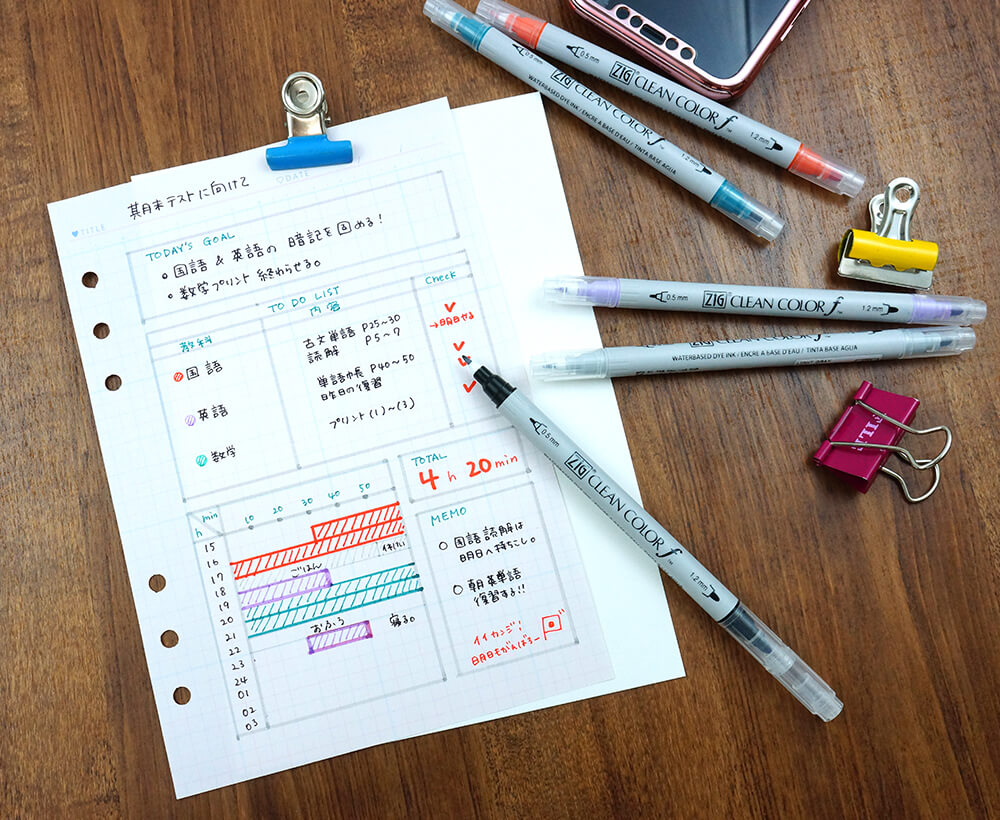 TITLE
DATE
期末テストに向けて
TODAY'S GOAL
国語 & 英語の 暗記を 固める!
数学プリント 終わらせる。
TO DO LIST
教科
内容
Check
国語
古文単語 P25~30
読解 P5~7
→明日やる
英語
単語帳 P40~50
昨日の復習
数学
プリント(1)~(3)
TOTAL
4 h 20 min
min
h
10 20 30 40 50
15
16
17
18
19
20
21
22
23
24
01
02
03
ごはん
おふろ
寝る。
MEMO
国語 読解は
明日へ持ちこし。
朝英単語
復習する!!
イイカンジ!
明日もがんばろー
0.5 mm ZIG CLEAN COLOR f 1.2 mm
0.5 mm ZIG CLEAN COLOR f 1.2 mm
WATERBASED DYE INK / ENCRE A BASE D'EAU / TINTA BASE AGUA
0.5 mm ZIG CLEAN COLOR f 1.2 mm
WATERBASED DYE INK / ENCRE A BASE D'EAU / TINTA BASE AGUA
0.5 mm ZIG CLEAN COLOR f 1.2 mm